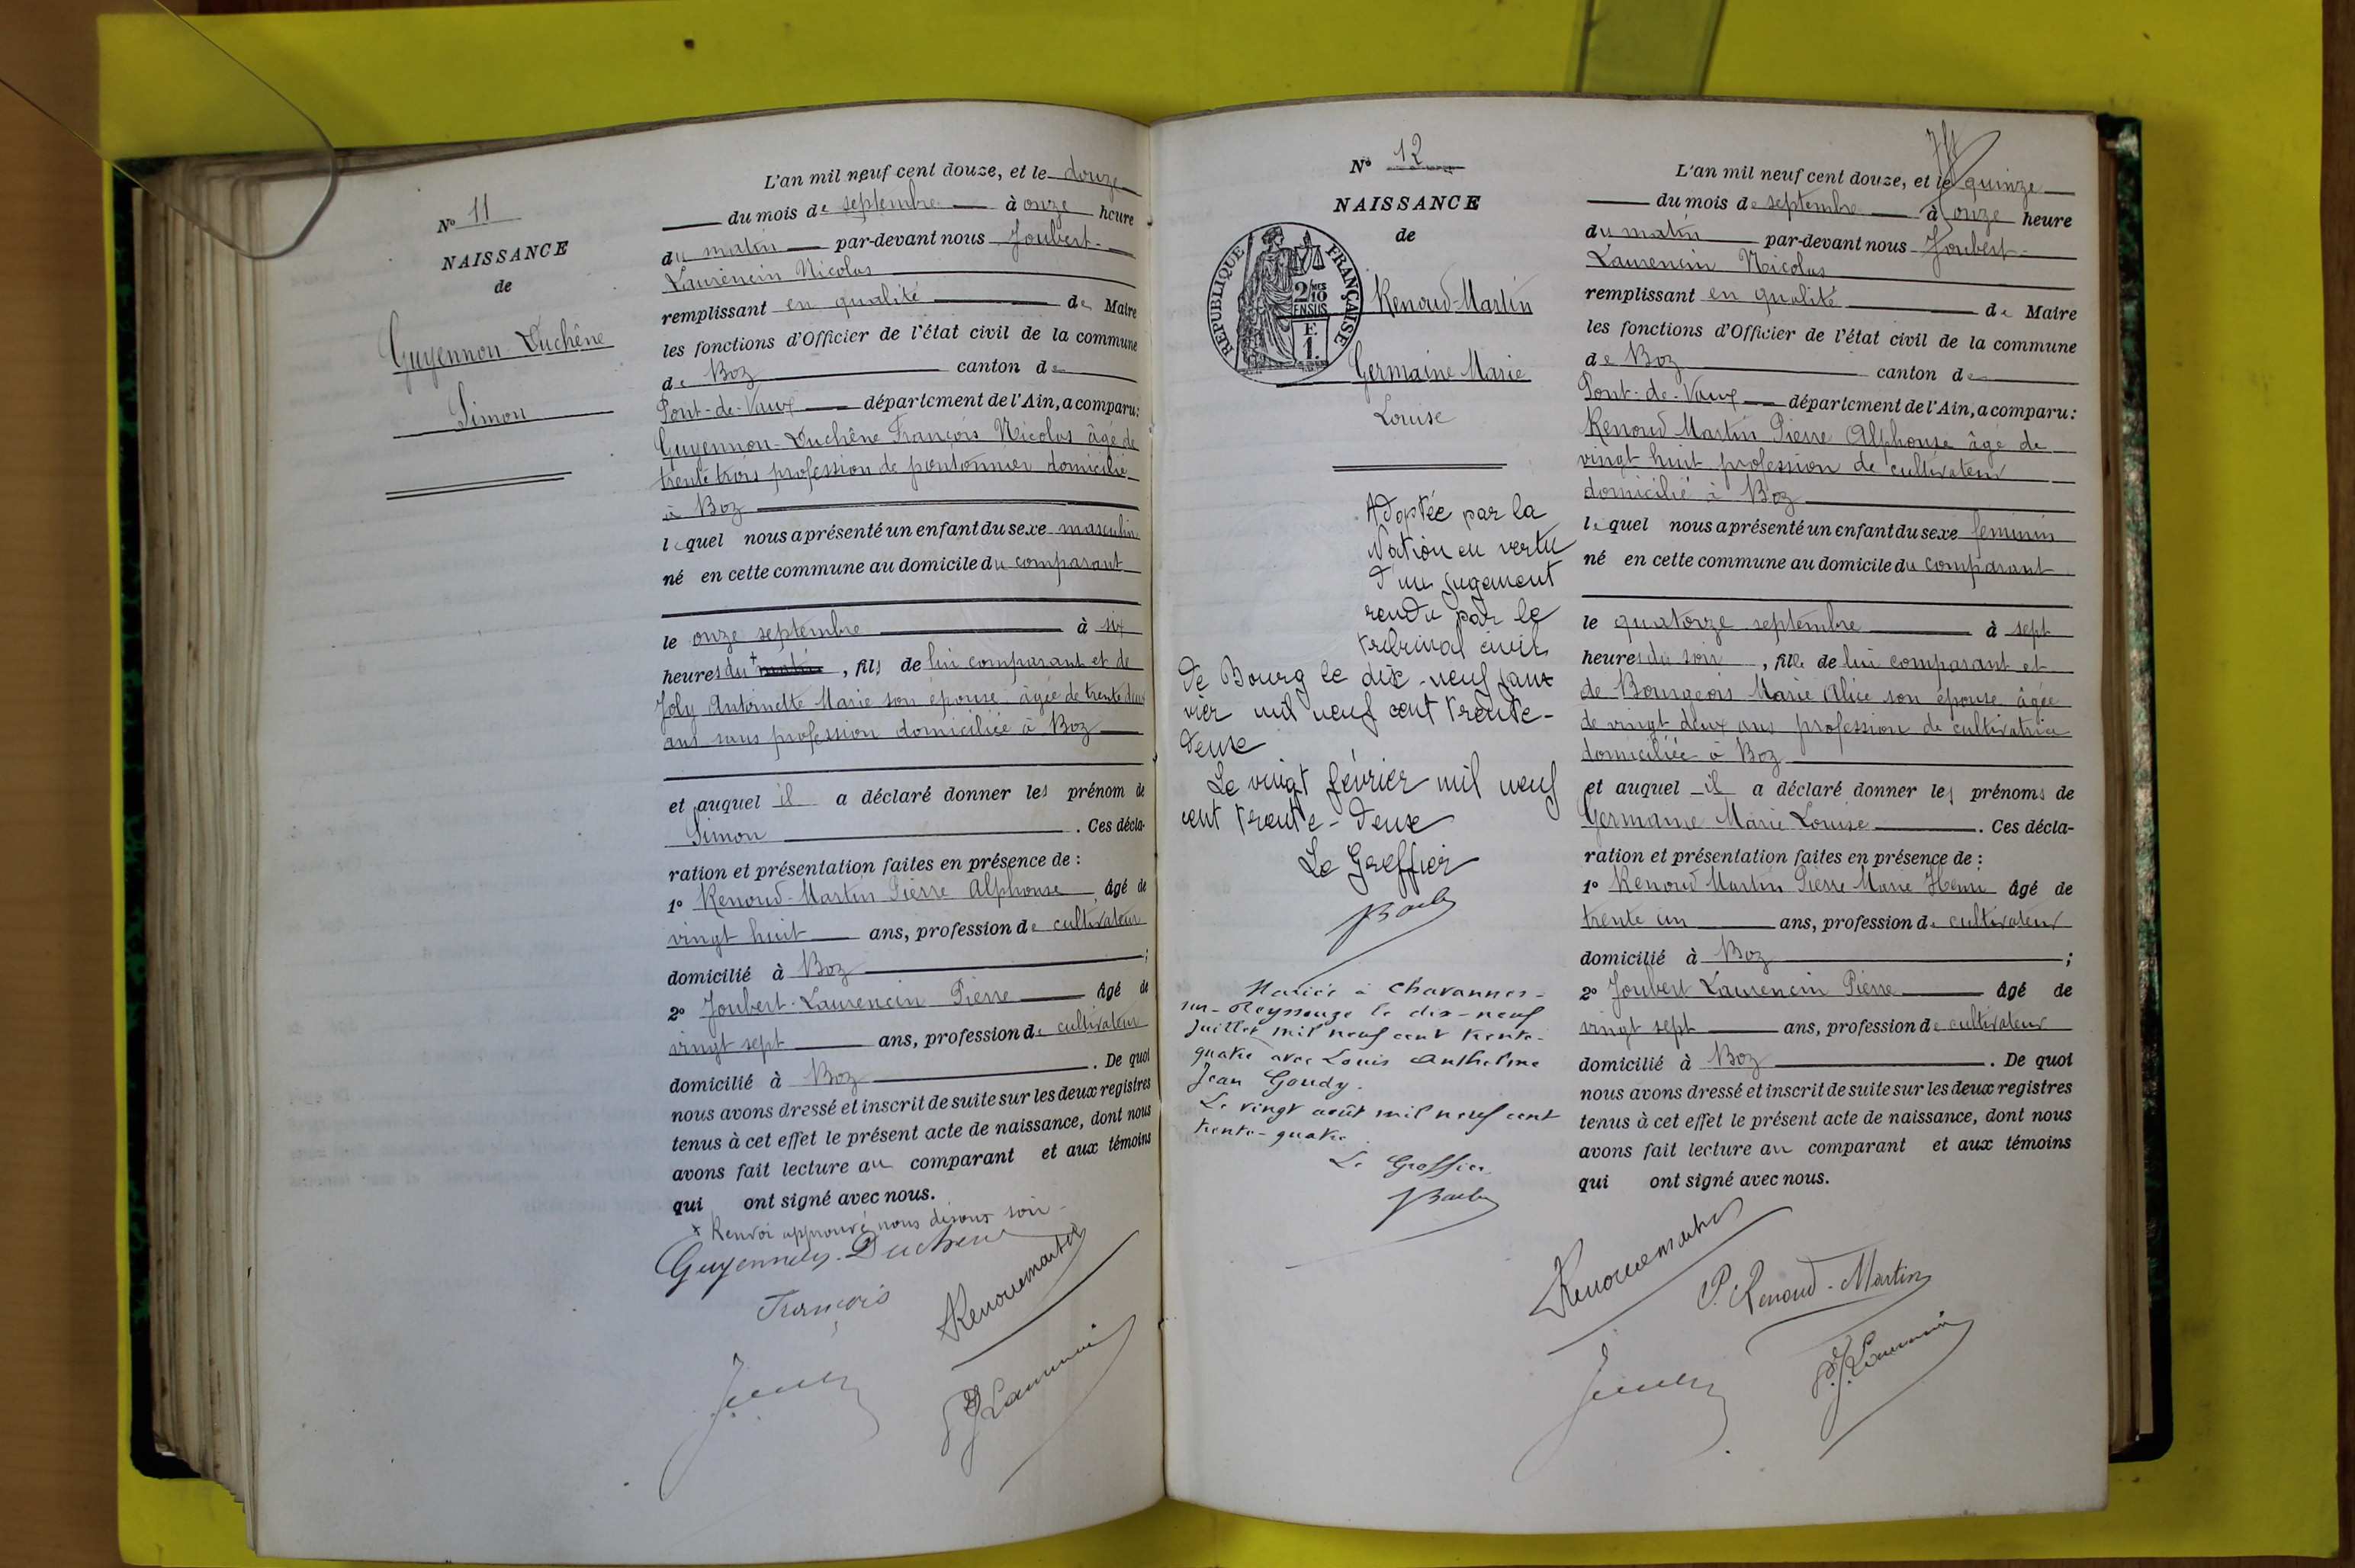 N° 11
NAISSANCE
de
Guyennon-Duchêne
Simon
L'an mil neuf cent douze, et le douze
du mois de septembre à onze heure
du matin par-devant nous Joubert-
Laurencin Nicolas
remplissant en qualité de Maire
les fonctions d'Officier de l'état civil de la commune
de Boz canton de
Pont-de-Vaux département de l'Ain, a comparu:
Guyennon-Duchêne François Nicolas âgé de
trente trois profession de pontonnier domicilié
à Boz
lequel nous a présenté un enfant du sexe masculin
né en cette commune au domicile du comparant
le onze septembre à six
heures du + matin , fils de lui comparant et de
Joly Antoinette Marie son épouse âgée de trente deux
ans sans profession domiciliée à Boz
et auquel il a déclaré donner les prénom de
Simon . Ces décla-
ration et présentation faites en présence de :
1° Renoud-Martin Pierre Alphonse âgé de
vingt huit ans, profession de cultivateur
domicilié à Boz ;
2° Joubert-Laurencin Pierre âgé de
vingt sept ans, profession de cultivateur
domicilié à Boz . De quoi
nous avons dressé et inscrit de suite sur les deux registres
tenus à cet effet le présent acte de naissance, dont nous
avons fait lecture au comparant et aux témoins
qui ont signé avec nous.
+ Renvoi approuvé nous disons soir
Guyennon-Duchene
François
Renoudmartin
PJ Laurencin
N° 12
NAISSANCE
de
RÉPUBLIQUE FRANÇAISE
2/10 ES
EN SUS
F.
1.
Renoud-Martin
Germaine Marie
Louise
Adoptée par la
Nation en vertu
d'un jugement
rendu par le
tribunal civil
de Bourg le dix-neuf jan-
vier mil neuf cent trente-
deux
Le vingt février mil neuf
cent trente-deux
Le Greffier
Mariée à Chavannes-
sur-Reyssouze le dix-neuf
juillet mil neuf cent trente-
quatre avec Louis Anthelme
Jean Goudy.
Le vingt août mil neuf cent
trente-quatre
Le Greffier
74
L'an mil neuf cent douze, et le quinze
du mois de septembre à onze heure
du matin par-devant nous Joubert-
Laurencin Nicolas
remplissant en qualité de Maire
les fonctions d'Officier de l'état civil de la commune
de Boz canton de
Pont-de-Vaux département de l'Ain, a comparu:
Renoud Martin Pierre Alphonse âgé de
vingt huit profession de cultivateur
domicilié à Boz
lequel nous a présenté un enfant du sexe feminin
né en cette commune au domicile du comparant
le quatorze septembre à sept
heures du soir , fille de lui comparant et
de Bourgeois Marie Alice son épouse âgée
de vingt deux ans profession de cultivatrice
domiciliée à Boz
et auquel il a déclaré donner les prénoms de
Germaine Marie Louise . Ces décla-
ration et présentation faites en présence de :
1° Renoud Martin Pierre Marie Henri âgé de
trente un ans, profession de cultivateur
domicilié à Boz ;
2° Joubert Laurencin Pierre âgé de
vingt sept ans, profession de cultivateur
domicilié à Boz . De quoi
nous avons dressé et inscrit de suite sur les deux registres
tenus à cet effet le présent acte de naissance, dont nous
avons fait lecture au comparant et aux témoins
qui ont signé avec nous.
Renoudmartin
P. Renoud-Martin
P.J. Laurencin